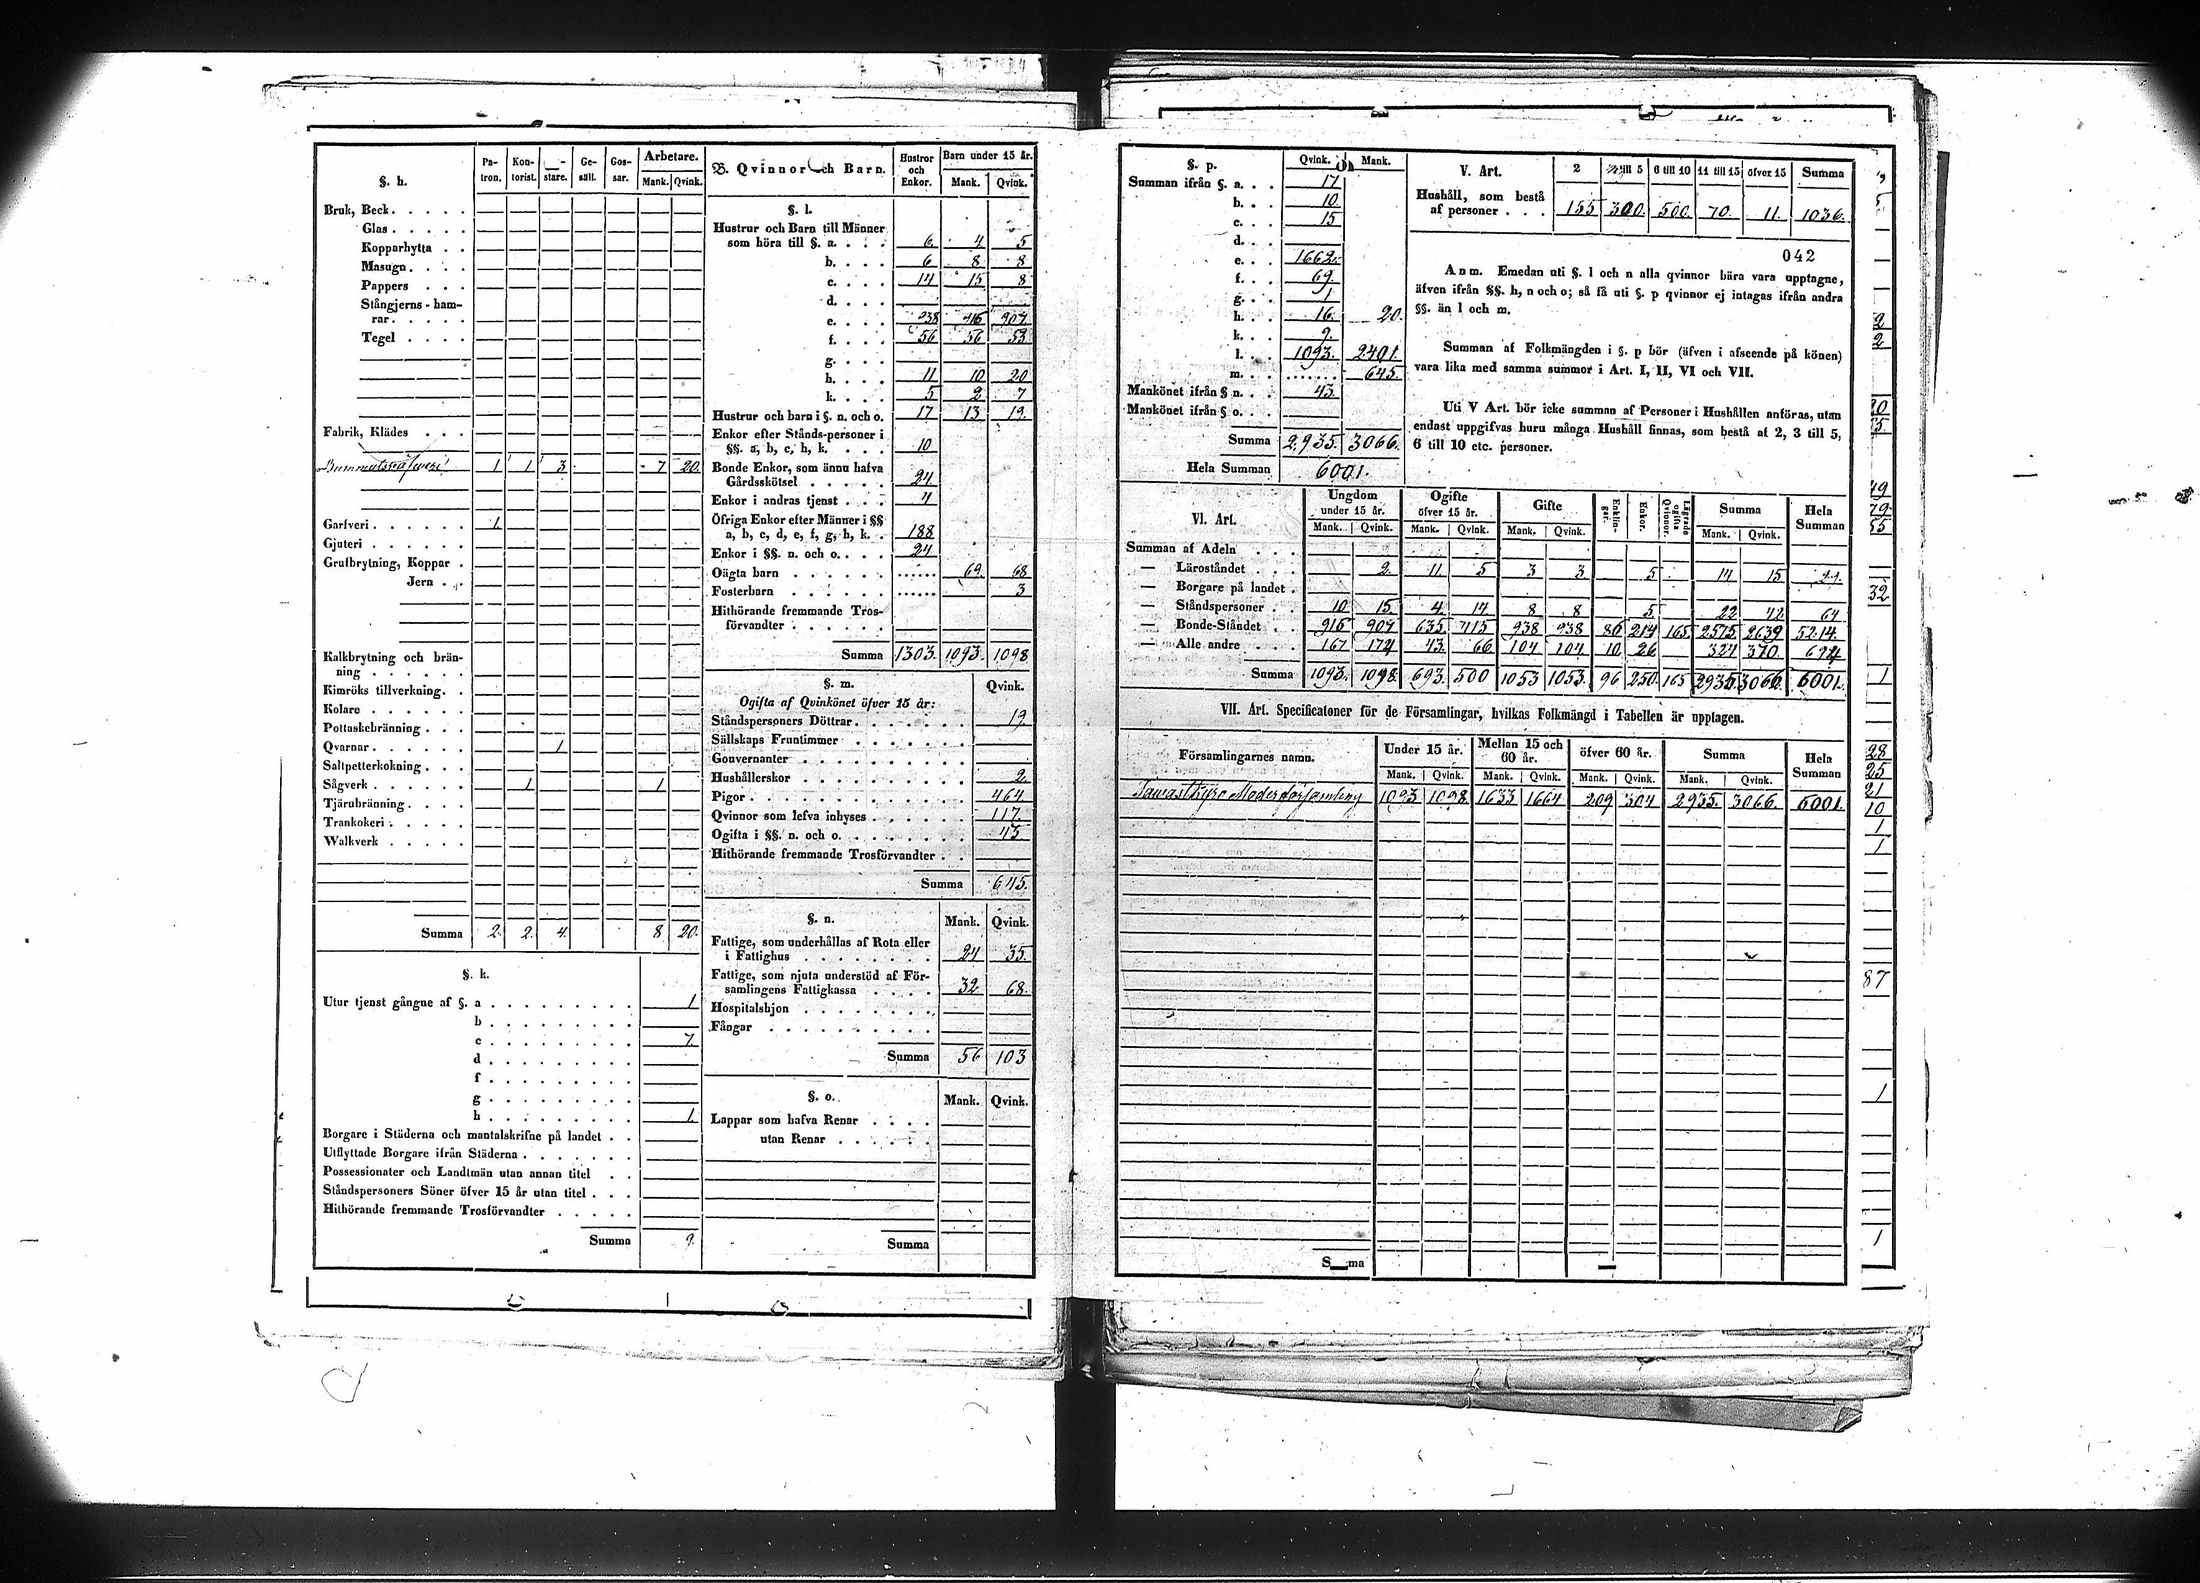 §. h. Pa-tron. Kon-torist. -stare. Ge-säll. Gos-sar. Arbetare. Mank. Qvink.
Bruk, Beck
Glas
Kopparhytta
Masugn
Pappers
Stångjerns-ham-
rar
Tegel
Fabrik, Klädes
1 1 3 7 20.
Garfveri 1
Gjuteri
Grufbrytning, Koppar
Jern
Kalkbrytning och brän-
ning
Kimröks tillverkning
Kolare
Pottaskebränning
Qvarnar 1
Saltpetterkokning
Sågverk 1 1
Tjärubränning
Trankokeri
Walkverk
Summa 2. 2. 4. 8 20.
§. k.
Utur tjenst gångne af §. a 1
b
c 7
d
f
g
h 1
Borgare i Städerna och mantalskrifne på landet
Utflyttade Borgare ifrån Städerna
Possessionater och Landtmän utan annan titel
Ståndspersoners Söner öfver 15 år utan titel
Hithörande fremmande Trosförvandter
Summa 9.
B. Qvinnor och Barn. Hustror och Enkor. Barn under 15 år. Mank. Qvink.
§. l.
Hustrur och Barn till Männer
som höra till §. a. 6 4 5
b. 6 8 8
c. 14 15 8
d.
e. 938 916 907
f. 56 56 53
g.
h. 11 10 20
k. 5 2 7
Hustrur och barn i §. n. och o. 17 13 19
Enkor efter Stånds-personer i
§§. a, b, c, h, k. 10
Bonde Enkor, som ännu hafva
Gårdsskötsel 24
Enkor i andras tjenst 4
Öfriga Enkor efter Männer i §§
a, b, c, d, e, f, g, h, k. 188
Enkor i §§. n. och o. 24
Oägta barn 69 68
Fosterbarn 3
Hithörande fremmande Tros-
förvandter
Summa 1303. 1093. 1098
§. m. Qvink.
Ogifta af Qvinkönet öfver 15 år:
Ståndspersoners Döttrar 19
Sällskaps Fruntimmer
Gouvernanter
Hushållerskor 2
Pigor 464
Qvinnor som lefva inhyses 117.
Ogifta i §§. n. och o. 43
Hithörande fremmande Trosförvandter
Summa 645.
§. n. Mank. Qvink.
Fattige, som underhållas af Rota eller
i Fattighus 24 35.
Fattige, som njuta understöd af För-
samlingens Fattigkassa 32 68.
Hospitalshjon
Fångar
Summa 56 103
§. o. Mank. Qvink.
Lappar som hafva Renar
utan Renar
Summa
§. p. Qvink. Mank.
Summan ifrån §. a. 17
b. 10.
c. 15
d.
e. 1662.
f. 69.
g. 1
h. 16. 20.
k. 9.
l. 1093. 2401.
m. 645.
Mankönet ifrån § n. 43.
Mankönet ifrån § o.
Summa 2,935. 3066.
Hela Summan 6001.
V. Art. 2 till 5 6 till 10 11 till 15 öfver 15 Summa
Hushåll, som bestå
af personer 155 300. 500. 70. 11. 1036.
042
Anm. Emedan uti §. l och n alla qvinnor bära vara upptagne,
äfven ifrån §§. h, n och o; så få uti §. p qvinnor ej intagas ifrån andra
§§. än l och m.
Summan af Folkmängden i §. p bör (äfven i afseende på könen)
vara lika med samma summor i Art. I, II, VI och VII.
Uti V Art. bör icke summan af Personer i Hushållen anföras, utan
endast uppgifvas huru många Hushåll finnas, som bestå af 2, 3 till 5,
6 till 10 etc. personer.
VI. Art. Ungdom under 15 år. Ogifte öfver 15 år. Gifte Enklin-gar. Enkor. Lägrade ogifta Qvinnor. Summa Hela Summan
Mank. Qvink. Mank. Qvink. Mank. Qvink. Mank. Qvink.
Summan af Adeln
— Läroståndet 2. 11. 5 3 3 5 14 15
— Borgare på landet
— Ståndspersoner 10 15. 4 14 8 8 5 22 42 64
— Bonde-Ståndet 916 907 635. 415 938 938 86 214 165 2575 2639 5214.
— Alle andre 167 174 43. 66 104 104 10 26 324 370. 694
Summa 1093. 1098. 693. 500 1053 1053. 96 250. 165 2935 3066. 6001.
VII. Art. Specificatoner för de Församlingar, hvilkas Folkmängd i Tabellen är upptagen.
Församlingarnes namn. Under 15 år. Mellan 15 och 60 år. öfver 60 år. Summa Hela Summan
Mank. Qvink. Mank. Qvink. Mank. Qvink. Mank. Qvink.
Tawastkyro Moderförsamling 1093. 1098 1633 1664 209 304 2935. 3066. 6001.
S ma